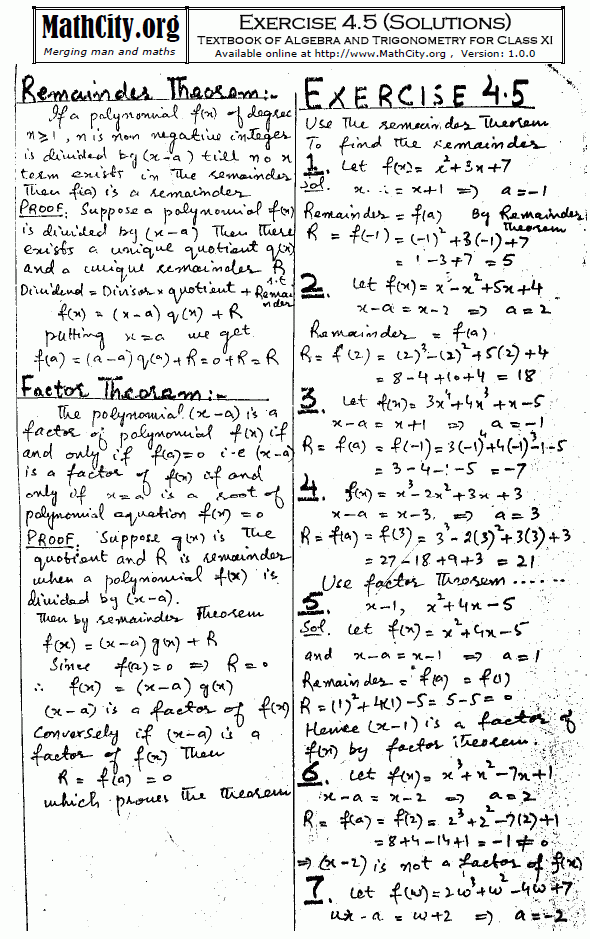 MathCity.org
Merging man and maths
EXERCISE 4.5 (SOLUTIONS)
TEXTBOOK OF ALGEBRA AND TRIGONOMETRY FOR CLASS XI
Available online at http://www.MathCity.org , Version: 1.0.0
Remainder Theorem:-
If a polynomial f(x) of degree
n≥1, n is non negative integer
is divided by (x-a) till no x
term exists in the remainder
Then f(a) is a remainder
PROOF: Suppose a polynomial f(x)
is divided by (x-a) Then there
exists a unique quotient q(x)
and a unique remainder R
s.t.
Dividend = Divisor × quotient + Remainder
f(x) = (x-a) q(x) + R
putting x=a we get
f(a) = (a-a) q(a) + R = 0 + R = R
Factor Theorem:-
The polynomial (x-a) is a
factor of polynomial f(x) if
and only if f(a)=0 i.e (x-a)
is a factor of f(x) if and
only if x=a is a root of
polynomial equation f(x)=0
PROOF: Suppose q(x) is the
quotient and R is remainder
when a polynomial f(x) is
divided by (x-a).
Then by remainder Theorem
f(x) = (x-a) q(x) + R
Since f(a)=0 ⇒ R=0
∴ f(x) = (x-a) q(x)
(x-a) is a factor of f(x)
Conversely if (x-a) is a
factor of f(x) Then
R = f(a) = 0
which proves the theorem
EXERCISE 4.5
Use the remainder Theorem
To find the remainder
1. Let f(x) = x²+3x+7
Sol. = x+1 ⇒ a=-1
Remainder = f(a) By Remainder Theorem
R = f(-1) = (-1)²+3(-1)+7
= 1-3+7 = 5
2. Let f(x) = x³-x²+5x+4
x-a = x-2 ⇒ a=2
Remainder = f(a)
R = f(2) = (2)³-(2)²+5(2)+4
= 8-4+10+4 = 18
3. Let f(x) = 3x⁴+4x³+x-5
x-a = x+1 ⇒ a=-1
R = f(a) = f(-1) = 3(-1)⁴+4(-1)³-1-5
= 3-4-1-5 = -7
4. f(x) = x³-2x²+3x+3
x-a = x-3 ⇒ a=3
R = f(a) = f(3) = 3³-2(3)²+3(3)+3
= 27-18+9+3 = 21
Use factor Theorem ......
5. x-1, x²+4x-5
Sol. Let f(x) = x²+4x-5
and x-a = x-1 ⇒ a=1
Remainder = f(a) = f(1)
R = (1)²+4(1)-5 = 5-5 = 0
Hence (x-1) is a factor of
f(x) by factor theorem.
6. Let f(x) = x³+x²-7x+1
x-a = x-2 ⇒ a=2
R = f(a) = f(2) = 2³+2²-7(2)+1
= 8+4-14+1 = -1 ≠ 0
⇒ (x-2) is not a factor of f(x)
7. Let f(w) = 2w³+w²-4w+7
-a = w+2 ⇒ a=-2